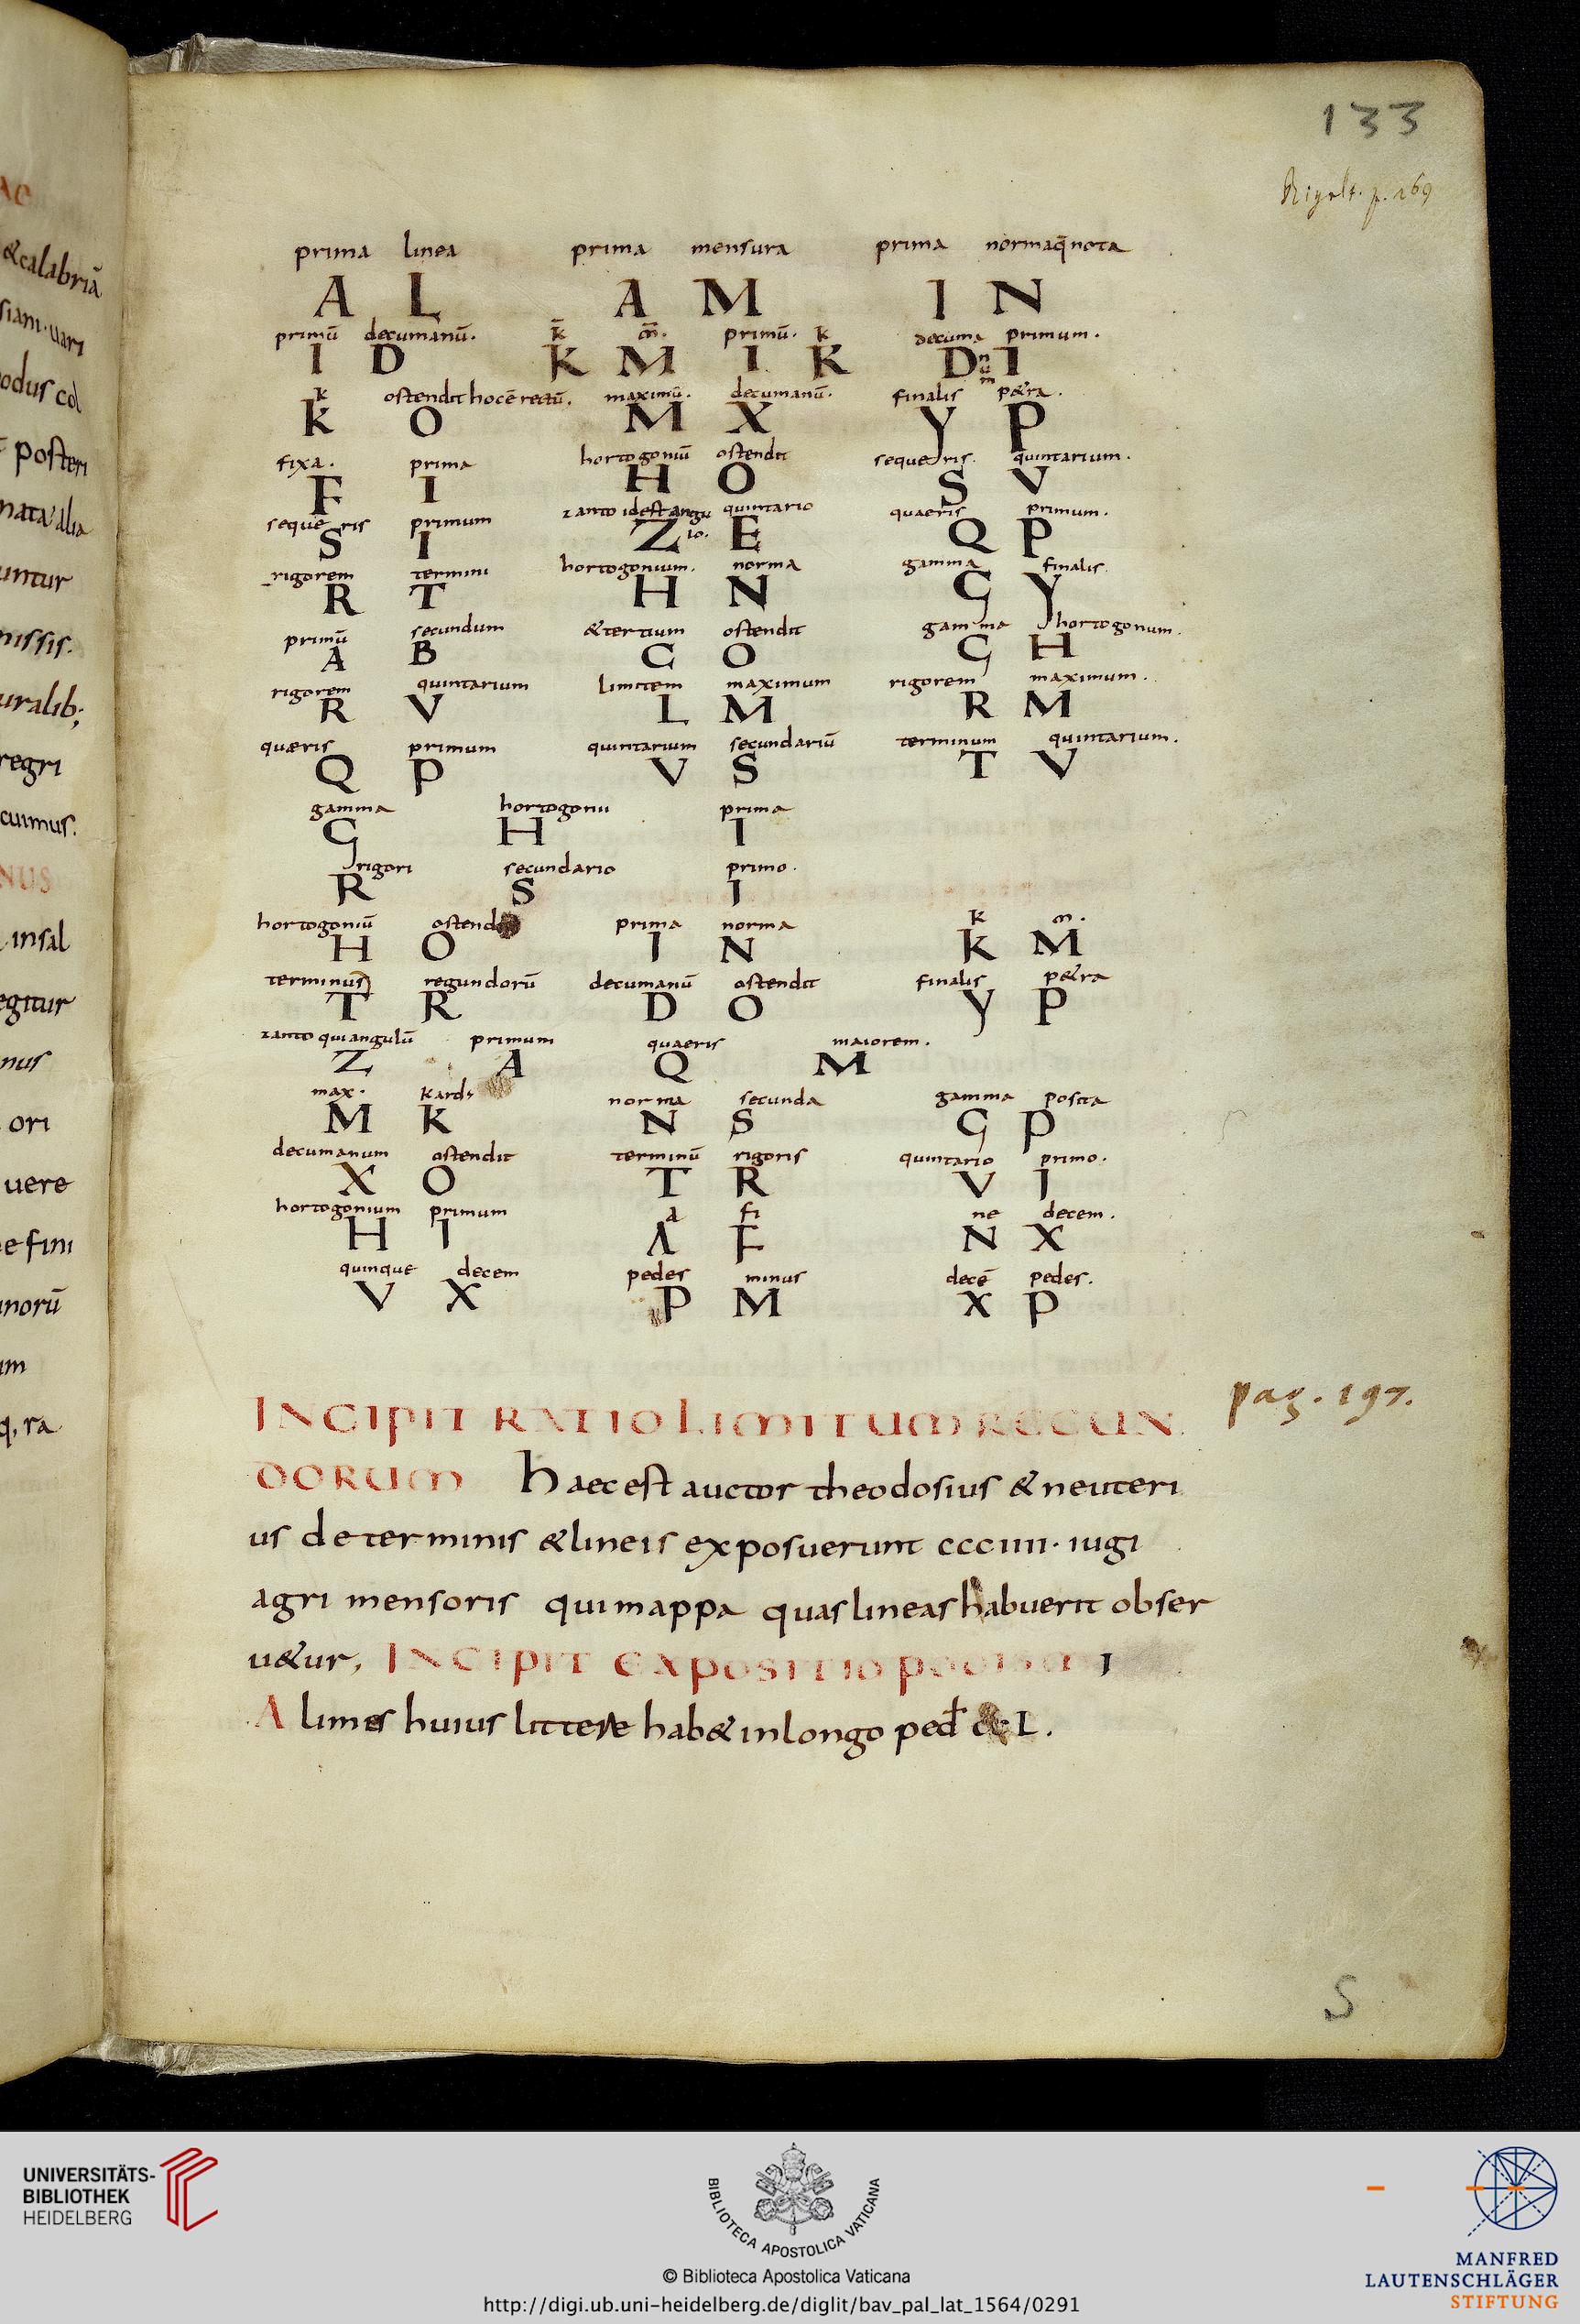 133
Rigalt. p. 169
prima linea prima mensura prima normaq̄nota
A L A M I N
primū decumanū. k̄ m̄. primū. k decuma primum.
I D K M I K D num I
k ostendit hocē rectū. maximū. decumanū. finalis p&ra.
K O M X Y P
fixa. prima hortogoniū ostendit sequeris. quintarium.
F I H O S V
sequeris primum zanto idest angulo. quintario quaeris primum.
S I Z E Q P
rigorem termini hortogonium. norma gamma finalis.
R T H N G Y
primū secundum &tertium ostendit gamma hortogonum.
A B C O G H
rigorem quintarium limitem maximum rigorem maximum.
R V L M R M
quæris primum quintarium secundariū terminum quintarium.
Q P V S T V
gamma hortogonii prima
G H I
rigori secundario primo.
R S I
hortogoniū prima norma k m.
H O I N K M
terminus regundorū decumanū ostendit finalis p&ra
T R D O Y P
zanto quiangulū primum quaeris maiorem.
Z A Q M
max. kard norma secunda gamma posita
M K N S G P
decumanum ostendit terminū rigoris quintario primo.
X O T R V I
hortogonium primum a fi ne decem.
H I A F N X
quinque decem pedes minus decē pedes.
V X P M X P
INCIPIT RATIO LIMITUM REGUN
DORUM haec est auctor theodosius & neuteri
us determinis & lineis exposuerunt ccciiii. iugi
agri mensoris qui mappa quas lineas habuerit obser
u&ur, INCIPIT EXPOSITIO PODISMI
A limes huius littere hab& inlongo ped L.
pag. 197.
S
&calabriā
posteri
alia
untur
missis.
uralib;
regri
cuimus.
NUS
insal
egitur
nus
ori
uere
e fini
norū
um
q, ra
UNIVERSITÄTS-
BIBLIOTHEK
HEIDELBERG
BIBLIOTECA APOSTOLICA VATICANA
© Biblioteca Apostolica Vaticana
http://digi.ub.uni-heidelberg.de/diglit/bav_pal_lat_1564/0291
MANFRED
LAUTENSCHLÄGER
STIFTUNG